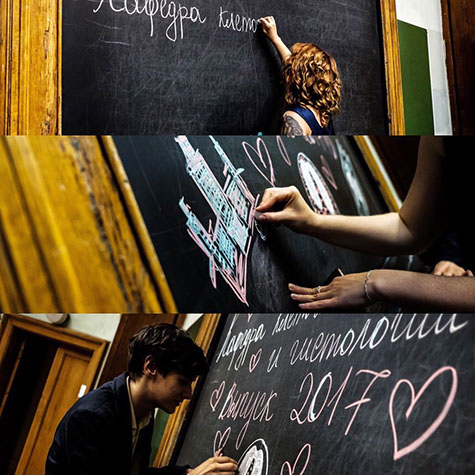 Кафедра клето
Кафедра клето
и гистологии
Выпуск 2017